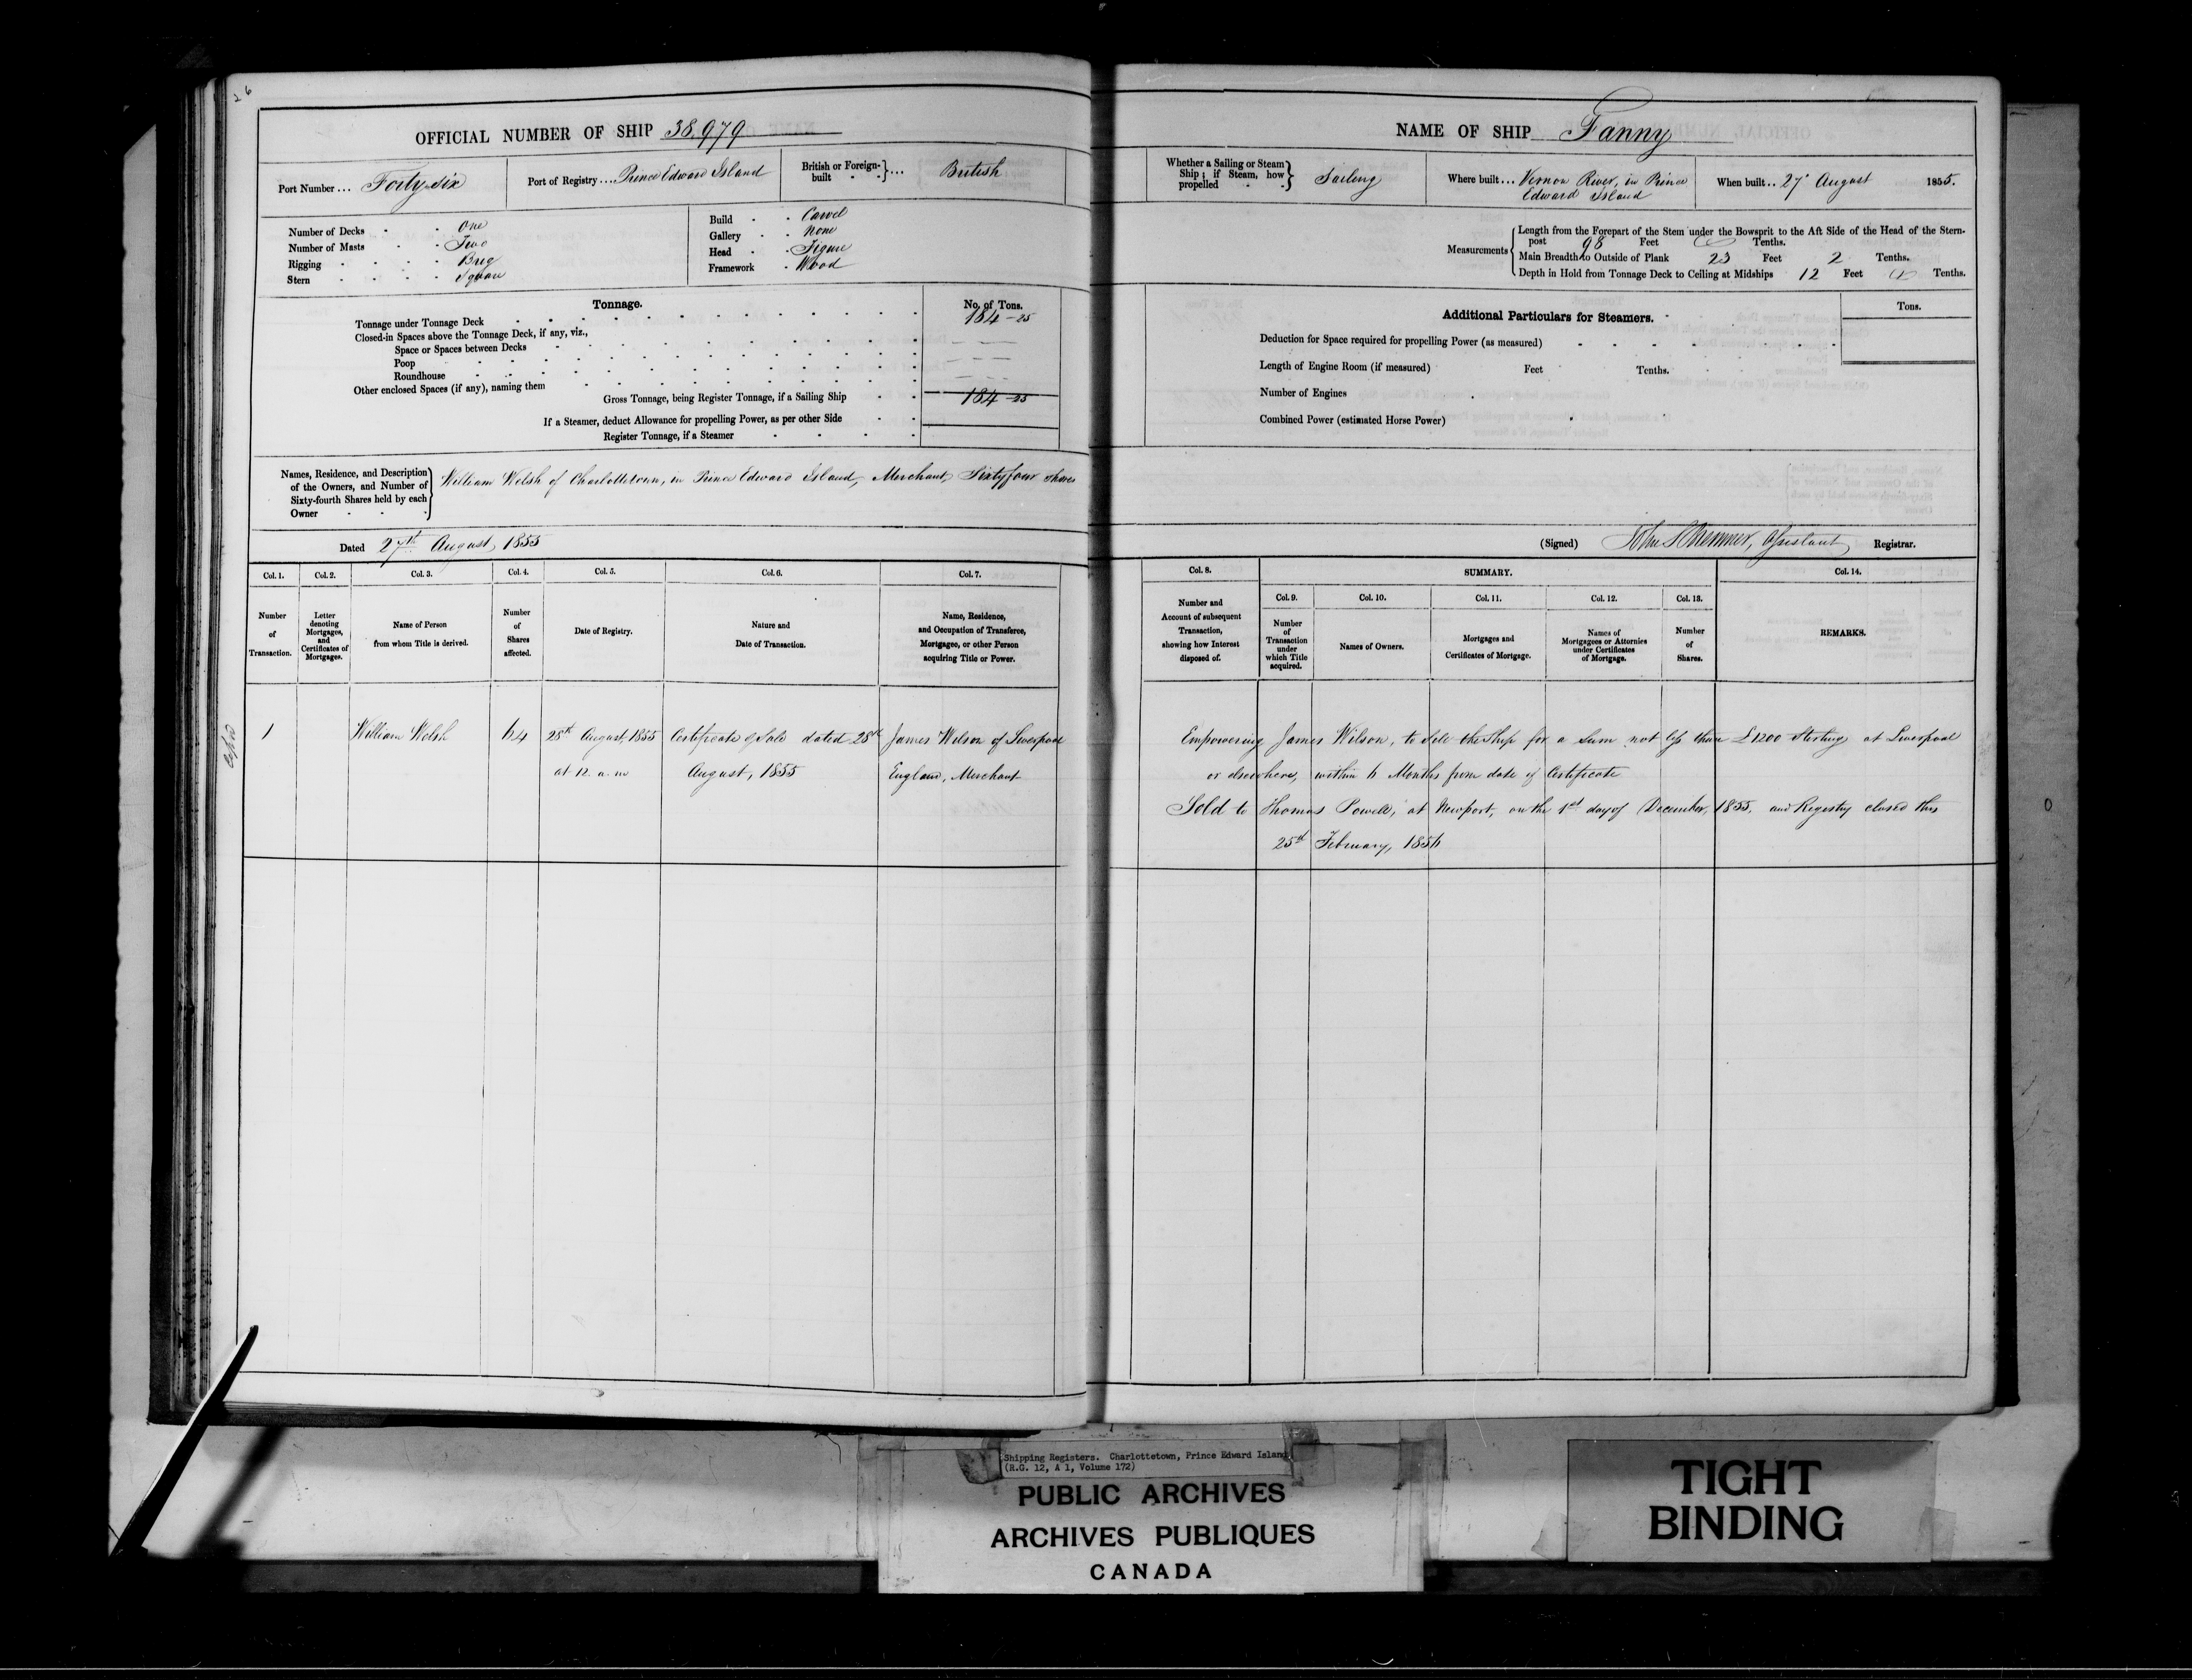 26
OFFICIAL NUMBER OF SHIP 38,979
Port Number ... Forty-six
Port of Registry .... Prince Edward Island
British or Foreign-built } ... British
Number of Decks One
Number of Masts Two
Rigging Brig
Stern Square
Build Carvel
Gallery None
Head Figure
Framework Wood
Tonnage.
No. of Tons.
Tonnage under Tonnage Deck 184-25
Closed-in Spaces above the Tonnage Deck, if any, viz.,
Space or Spaces between Decks
Poop
Roundhouse
Other enclosed Spaces (if any), naming them
Gross Tonnage, being Register Tonnage, if a Sailing Ship 184-25
If a Steamer, deduct Allowance for propelling Power, as per other Side
Register Tonnage, if a Steamer
Names, Residence, and Description
of the Owners, and Number of
Sixty-fourth Shares held by each
Owner
William Welsh of Charlottetown, in Prince Edward Island, Merchant, Sixtyfour shares
Dated 27th August, 1855
Col. 1.
Number
of
Transaction.
Col. 2.
Letter
denoting
Mortgages,
and
Certificates of
Mortgages.
Col. 3.
Name of Person
from whom Title is derived.
Col. 4.
Number
of
Shares
affected.
Col. 5.
Date of Registry.
Col. 6.
Nature and
Date of Transaction.
Col. 7.
Name, Residence,
and Occupation of Transferee,
Mortgagee, or other Person
acquiring Title or Power.
1
William Welsh
64
28th August, 1855
at 12. a. m
Certificate of Sale dated 28th
August, 1855
James Wilson of Liverpool
England, Merchant
NAME OF SHIP Fanny
Whether a Sailing or Steam
Ship; if Steam, how
propelled
Sailing
Where built ... Vernon River, in Prince
Edward Island
When built .. 27 August 1855.
Measurements
Length from the Forepart of the Stem under the Bowsprit to the Aft Side of the Head of the Stern-
post 98 Feet Tenths.
Main Breadth to Outside of Plank 23 Feet 2 Tenths.
Depth in Hold from Tonnage Deck to Ceiling at Midships 12 Feet Tenths.
Additional Particulars for Steamers.
Tons.
Deduction for Space required for propelling Power (as measured)
Length of Engine Room (if measured) Feet Tenths.
Number of Engines
Combined Power (estimated Horse Power)
(Signed) Assistant Registrar.
Col. 8.
Number and
Account of subsequent
Transaction,
showing how Interest
disposed of.
SUMMARY.
Col. 9.
Number
of
Transaction
under
which Title
acquired.
Col. 10.
Names of Owners.
Col. 11.
Mortgages and
Certificates of Mortgage.
Col. 12.
Names of
Mortgagees or Attornies
under Certificates
of Mortgage.
Col. 13.
Number
of
Shares.
Col. 14.
REMARKS.
Empowering James Wilson, to Sell the Ship for a Sum not less than £1200 Sterling at Liverpool
or elsewhere, within 6 Months from date of Certificate
Sold to Thomas Powell, at Newport, on the 1st day of December, 1855, and Registry closed this
25th February, 1856
Shipping Registers. Charlottetown, Prince Edward Island
(R.G. 12, A 1, Volume 172)
PUBLIC ARCHIVES
ARCHIVES PUBLIQUES
CANADA
TIGHT
BINDING